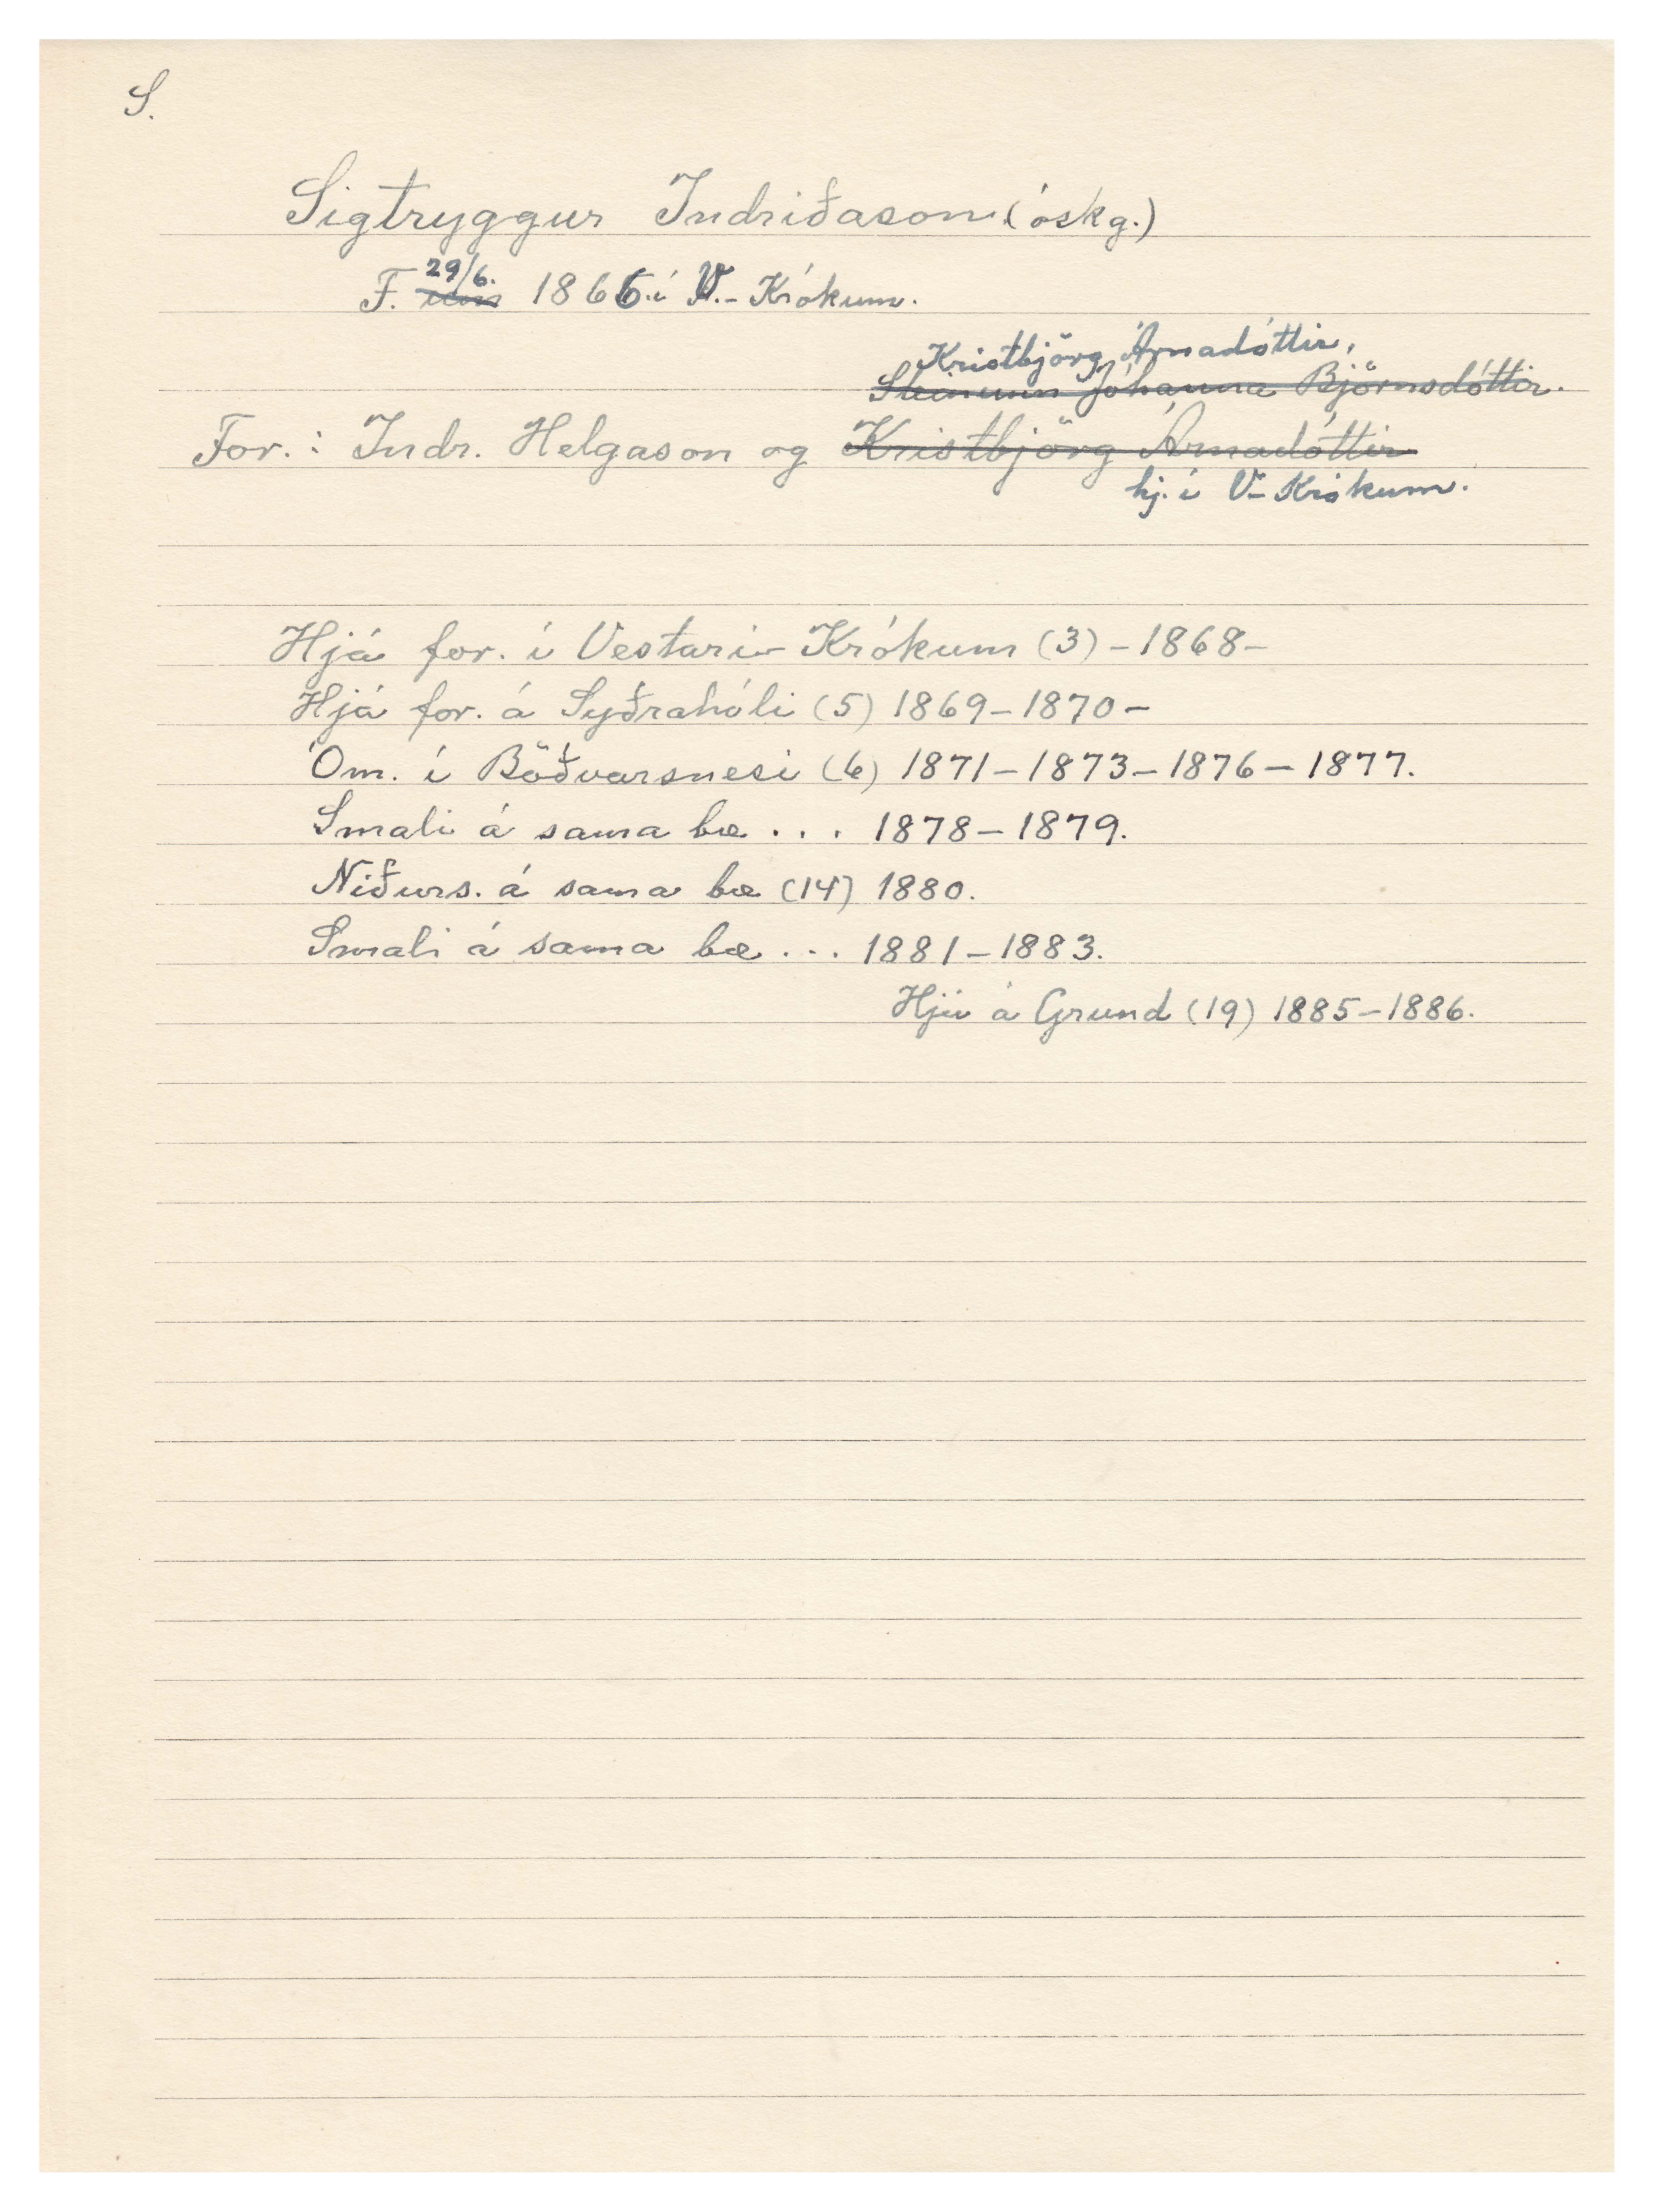 S.
Sigtryggur Indriðason (óskg.)
F. 29/6. 1866 í V.- Krókum.
Kristbjörg Árnadóttir,
Steinunn Jóhanna Björnsdóttir.
For. : Indr. Helgason og Kristbjörg Árnadóttir
hj. í V- Krókum.
Hjá for. í Vestari- Krókum (3) - 1868 -
Hjá for. á Syðrahóli (5) 1869 - 1870 -
Óm. í Böðvarsnesi (6) 1871 - 1873 - 1876 - 1877.
Smali á sama bæ . . . 1878 - 1879.
Niðurs. á sama bæ (14) 1880.
Smali á sama bæ . . . 1881 - 1883.
Hjú á Grund (19) 1885 - 1886.